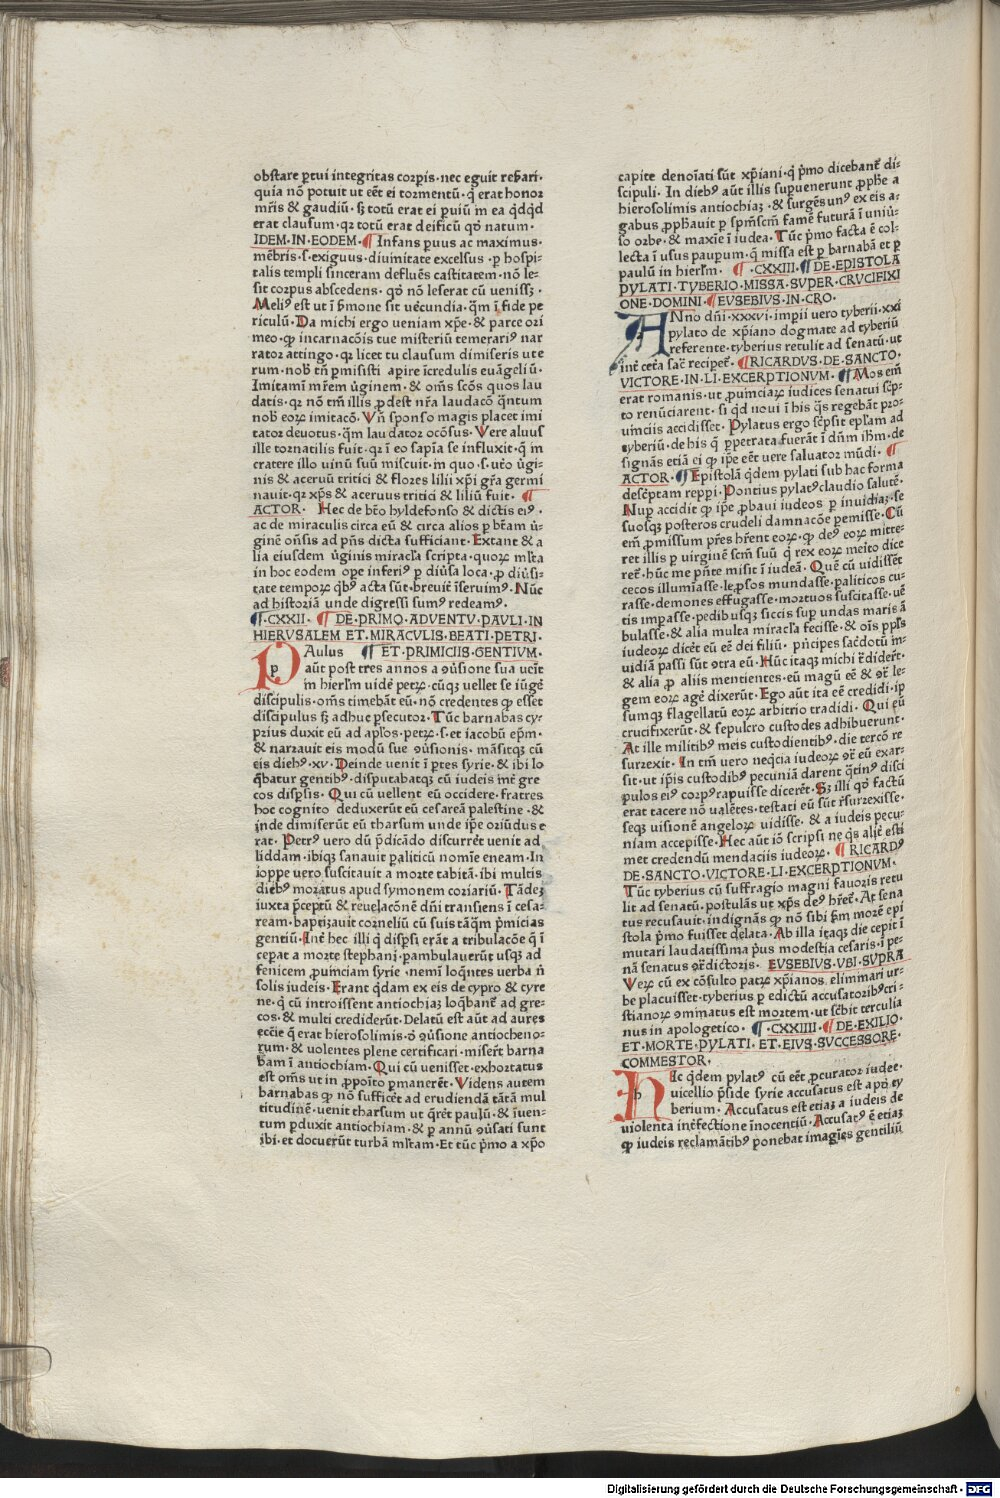 obstare ꝑtui integritas corꝑis · nec eguit reꝑari ·
quia nō potuit ut eēt ei tormentū · q̄ erat honor
mr̄is & gaudiū · sꝫ totū erat ei ꝑuiū in ea q̇dq̇d
erat clausum · qꝛ totū erat deificū qḋ natum ·
IDEM · IN · EODEM · ¶ Infans ꝑuus ac maximus ·
mēbris · s · exiguus · diuinitate excelsus · ꝑ hospi-
talis templi sinceram defluēs castitatem · nō le-
sit corpus abscedens · qḋ nō leserat cū uenissꝫ ·
Meliꝰ est ut ī ẜmone sit uecundia · q̄m ī fide pe
riculū · Da michi ergo ueniam xp̄e · & parce ori
meo · ꝙ incarnacōis tue misteriū temerariꝰ nar
rator attingo · qꝛ licet tu clausum dimiseris ute
rum · nob̄ tn̄ ꝑmisisti apire īcredulis euāgeliū ·
Imitamī mr̄em ũginem · & om̄s scōs quos lau
datis · qꝛ nō tm̄ illis ꝓdest nr̄a laudacō q̄ntum
nob̄ eoꝝ imitacō · Vn̄ sponso magis placet imi
tator deuotus · q̄m laudator ocōsus · Vere aluus
ille tornatilis fuit · qꝛ ī eo sapīa se influxit · q̄ in
cratere illo uinū suū miscuit · in quo · s · ut̄o ũgi-
nis & aceruū tritici & flores lilii xp̄i gr̄a germi
nauit · qꝛ xp̄s & aceruus tritici & liliū fuit · ¶
ACTOR · Hec de bēo hyldefonso & dictis eiꝰ ·
ac de miraculis circa eū & circa alios ꝑ bēam ũ-
ginē oñsis ad pn̄s dicta sufficiant · Extant & a
lia eiusdem ũginis miracl̄a scripta · quoꝝ ml̄ta
in hoc eodem oꝑe inferiꝰ ꝑ diũsa loca · ꝓ diũsi-
tate tempoꝝ q̇bꝰ acta sūt · breuit̄ īseruimꝰ · Nūc
ad historiā unde digressi sumꝰ redeamꝰ ·
¶ · CXXII · ¶ DE · PRIMO · ADVENTV · PAVLI · IN
HIERVSALEM ET · MIRACVLIS · BEATI · PETRI ·
PAulus ¶ ET · PRIMICIIS · GENTIVM ·
aūt post tres annos a ꝯũsione sua ueīt
in hierl̄m uide petꝝ · cūqꝫ uellet se iūgē
discipulis · om̄s timebāt eū · nō credentes ꝙ esset
discipulus sꝫ adhuc ꝑsecutor · Tūc barnabas cy-
prius duxit eū ad apl̄os · petꝝ · s · et iacobū ep̄m ·
& narrauit eis modū sue ꝯũsionis · māsitqꝫ cū
eis diebꝰ · xv · Deinde uenit ī ꝑtes syrie · & ibi lo
q̄batur gentibꝰ · disputabatqꝫ cū iudeis int̄ gre
cos disꝑsis · Qui cū uellent eū occidere · fratres
hoc cognito deduxerūt eū cesareā palestine · &
inde dimiserūt eū tharsum unde ip̄e oriūdus e
rat · Petrꝰ uero dū p̄dicādo discurrēt uenit ad
liddam · ibiqꝫ sanauit paliticū nomīe eneam · In
ioppe uero suscitauit a morte tabitā · ibi multis
diebꝰ moratus apud symonem coriariū · Tādeꝫ
iuxta p̄ceptū & reuelacōnē dn̄i transiens ī cesa-
ream · baptizauit corneliū cū suis tāq̄m p̄micias
gentiū · Int̄ hec illi q̇ disꝑsi erāt a tribulacōe q̄ ī
cepat a morte stephani · pambulauerūt usqꝫ ad
fenicem ꝓuinciam syrie · neminī loq̄ntes uerba n̄
solis iudeis · Erant q̇dam ex eis de cypro & cyre
ne · q̇ cū introissent antiochiaꝫ loq̄bant̄ ad gre-
cos · & multi crediderūt · Delatū est aūt ad aures
ecc̄ie q̄ erat hierosolimis · ō ꝯũsione antiocheno-
rum · & uolentes plene certificari · miser̄t barna
bam ī antiochiam · Qui cū uenisset · exhortatus
est om̄s ut in ꝓpoīto ꝑmanerēt · Videns autem
barnabas ꝙ nō sufficēt ad erudiendā tātā mul
titudinē · uenit tharsum ut q̄rēt paulū · & īuen-
tum ꝑduxit antiochiam · & ꝑ annū ꝯũsati sunt
ibi · et docuerūt turbā ml̄tam · Et tūc p̄mo a xp̄o
capite denoīati sūt xp̄iani · q̇ p̄mo dicebant̄ di-
scipuli · In diebꝰ aūt illis suꝑuenerunt ꝓph̄e a
hierosolimis antiochiaꝫ · & surgēs unꝰ ex eis a-
gabus ꝓph̄auit ꝑ sp̄mscm̄ famē futurā ī uniũ-
so orbe · & maxīe ī iudea · Tūc p̄mo facta ē col-
lecta ī usus paupum · q̄ missa est ꝑ barnabā et ꝑ
paulū in hierl̄m · ¶ · CXXIII · ¶ DE · EPISTOLA
PYLATI · TYBERIO · MISSA · SVPER · CRVCIFIXI
ONE · DOMINI · ¶ EVSEBIVS · IN · CRO ·
ANno dn̄i · xxxvi · impii uero tyberii · xxi
pylato de xp̄iano dogmate ad tyberiū
referente · tyberius retulit ad senatū · ut
int̄ cet̄a sac̄ reciper̄t · ¶ RICARDVS · DE · SANCTO ·
VICTORE · IN · LI · EXCERPTIONVM · ¶ Mos em̄
erat romanis · ut ꝓuinciaꝝ iudices senatui sc̄p-
to renūciarent · si q̇d noui ī his q̄s regebāt pro-
uinciis accidisset · Pylatus ergo sc̄psit epl̄am ad
tyberiū · de his q̄ ꝑpetrata fuerāt ī dn̄m ih̄m · de
signās etiā ei ꝙ ip̄e eēt uere saluator mūdi · ¶
ACTOR · ¶ Epistolā q̇dem pylati sub hac forma
desc̄ptam repꝑi · Pontius pylatꝰ claudio salutē ·
Nuꝑ accidit ꝙ ip̄e ꝓbaui iudeos ꝑ inuidiaꝫ · se
suosqꝫ posteros crudeli damnacōe ꝑemisse · Cū
em̄ ꝓmissum pr̄es hr̄ent eoꝝ · ꝙ deꝰ eoꝝ mitte-
ret illis ꝑ uirginē scm̄ suū q̇ rex eoꝝ meīto dice
ret̄ · hūc me pn̄te misit ī iudeā · Quē cū uidissēt
cecos illumīasse · leꝓsos mundasse · paliticos cu-
rasse · demones effugasse · mortuos suscitasse · uē
tis imꝑasse · pedibusqꝫ siccis suꝑ undas maris ā
bulasse · & alia multa miracl̄a fecisse · & oīs ppl̄s
iudeoꝝ dicēt eū eē dei filiū · pn̄cipes sac̄dotū in-
uidiā passi sūt ꝯtra eū · Hūc itaqꝫ michi t̄dider̄t ·
& alia ꝓ aliis mentientes · eū magū eē & ꝯt̄ le-
gem eoꝝ agē dixerūt · Ego aūt ita eē credidi · ip
sumqꝫ flagellatū eoꝝ arbitrio tradidi · Qui eū
crucifixerūt & sepulcro custodes adhibuerunt ·
At ille militibꝰ meis custodientibꝰ · die tercō re
surrexit · In tm̄ uero neq̄cia iudeoꝝ ꝯt̄ eū exar-
sit · ut ip̄is custodibꝰ pecuniā darent q̄tinꝰ disci
pulos eiꝰ corpꝰ rapuisse dicer̄t · Sꝫ illi qḋ factū
erat tacere nō ualētes · testati eū sūt r̄surrexisse ·
seqꝫ uisionē angeloꝝ uidisse · & a iudeis pecu-
niam accepisse · Hec aūt iō scripsi ne q̇s alit̄ esti
met credendū mendaciis iudeoꝝ · ¶ RICARDꝰ
DE · SANCTO · VICTORE · LI · EXCERPTIONVM ·
Tūc tyberius cū suffragio magni fauoris retu
lit ad senatū · postulās ut xp̄s deꝰ hr̄et̄ · At sena
tus recusauit · indignās ꝙ nō sibi ẜm morē epi
stola p̄mo fuisset delata · Ab illa itaqꝫ die cepit ī
mutari laudatissima p̄us modestia cesaris · ī pe-
nā senatus ꝯt̄dictoris · EVSEBIVS · VBI · SVPRA
Veꝝ cū ex cōsulto patꝝ xp̄ianos elimīnari ur-
be placuisset · tyberius ꝑ edictū accusatoribꝰ cri-
stianoꝝ ꝯminatus est mortem · ut scbit tertulia
nus in apologetico · ¶ · CXXIIII · ¶ DE · EXILIO ·
ET · MORTE · PYLATI · ET · EIVS · SVCCESSORE ·
COMMESTOR ·
HIc q̇dem pylatꝰ cū eēt ꝓcurator iudee ·
uicellio p̄side syrie accusatus est apḋ ty
berium · Accusatus est etiaꝫ a iudeis de
uiolenta int̄fectione īnocentiū · Accusatꝰ ē etiaꝫ
ꝙ iudeis reclamātibꝰ ponebat imagīes gentiliū
Digitalisierung gefördert durch die Deutsche Forschungsgemeinschaft - DFG